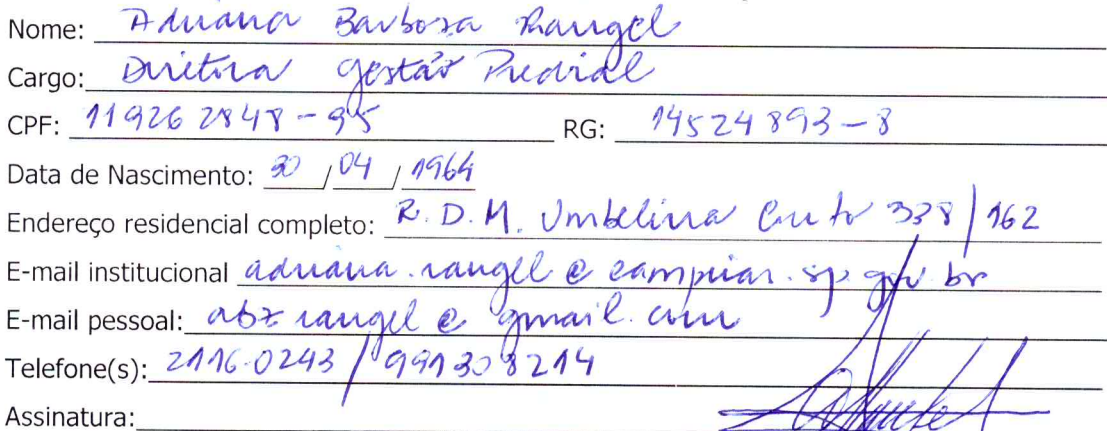 Nome: Adriana Barbosa Rangel
Cargo: Diretora Gestão Predial
CPF: 119262848-95 RG: 14524893-8
Data de Nascimento: 30 / 04 / 1964
Endereço residencial completo: R. D. M. Umbelina Couto 338/162
E-mail institucional adriana.rangel@campinas.sp.gov.br
E-mail pessoal: abzrangel@gmail.com
Telefone(s): 2116-0243 / 991308214
Assinatura: